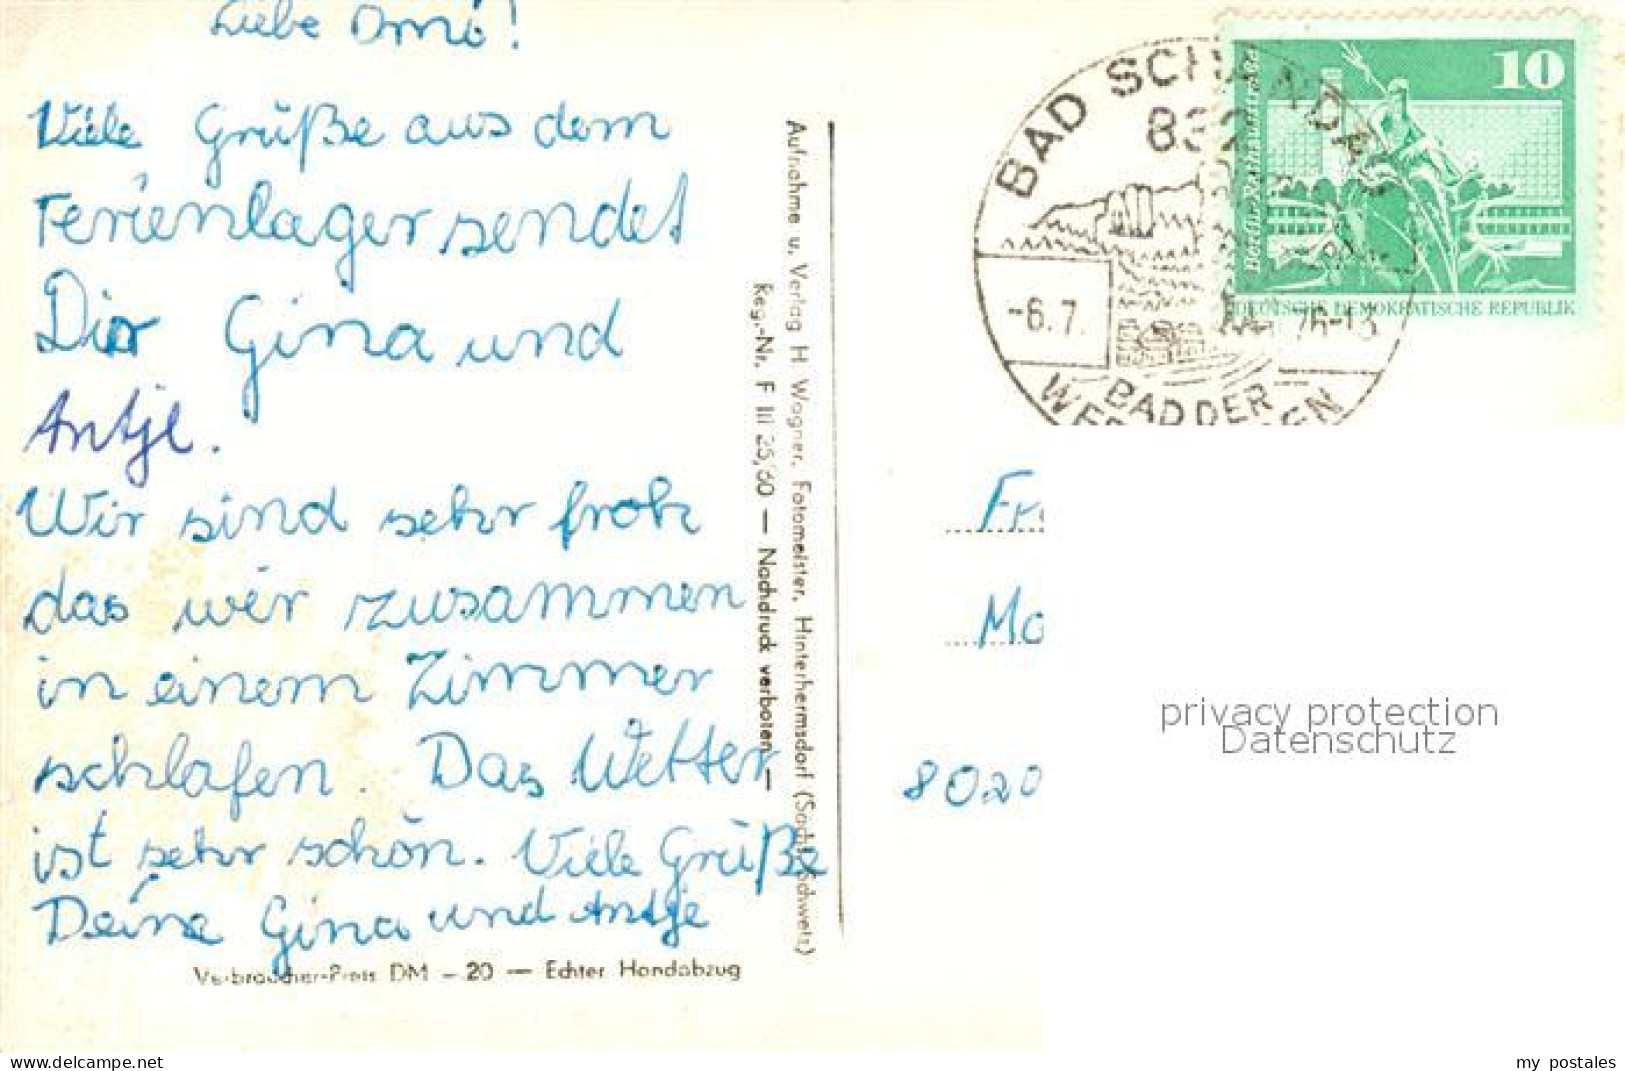 Liebe Omi!
Viele Grüße aus dem
Ferienlager sendet
Dir Gina und
Antje.
Wir sind sehr froh
das wir zusammen
in einem Zimmer
schlafen. Das Wetter
ist sehr schön. Viele Grüße
Deine Gina und Antje
Verbraucher-Preis DM –20 — Echter Handabzug
Aufnahme u. Verlag H. Wagner, Fotomeister, Hinterhermsdorf (Sächs. Schweiz)
Reg.-Nr. F III 25/60 — Nachdruck verboten —
BAD SCHANDAU
832
-6.7.
76-13
BAD DER
10
DEUTSCHE DEMOKRATISCHE REPUBLIK
Fr
Mo
8020
privacy protection
Datenschutz
https://www.delcampe.net
my_postales